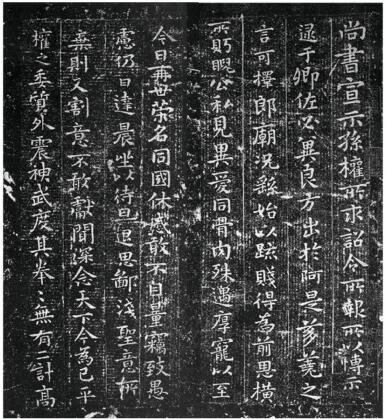 尚書宣示孫權所求詔令所報所以博示
逮于卿佐必冀良方出於阿是芻蕘之
言可擇郎廟況繇始以疏賤得為前恩橫
所盻睨公私見異愛同骨肉殊遇厚寵以至
今日再世榮名同國休慼敢不自量竊致愚
慮仍日達晨坐以待旦退思鄙淺聖意所
棄則又割意不敢獻聞深念天下今為已平
權之委質外震神武度其拳〻無有二計高